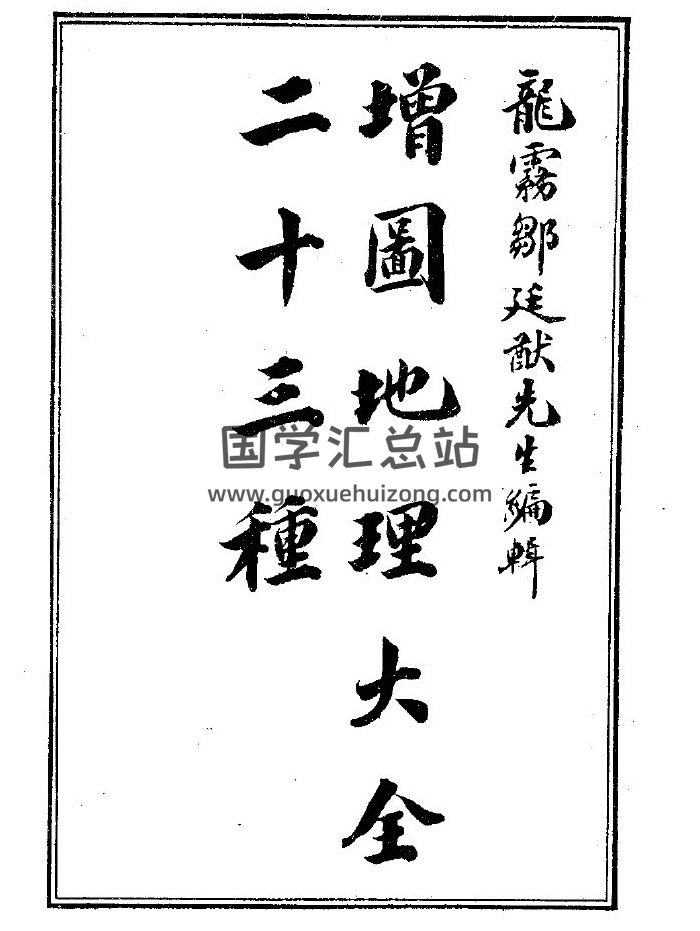 龍霧鄒廷猷先生編輯
增圖地理大全
二十三種
国学汇总站
www.guoxuehuizong.com